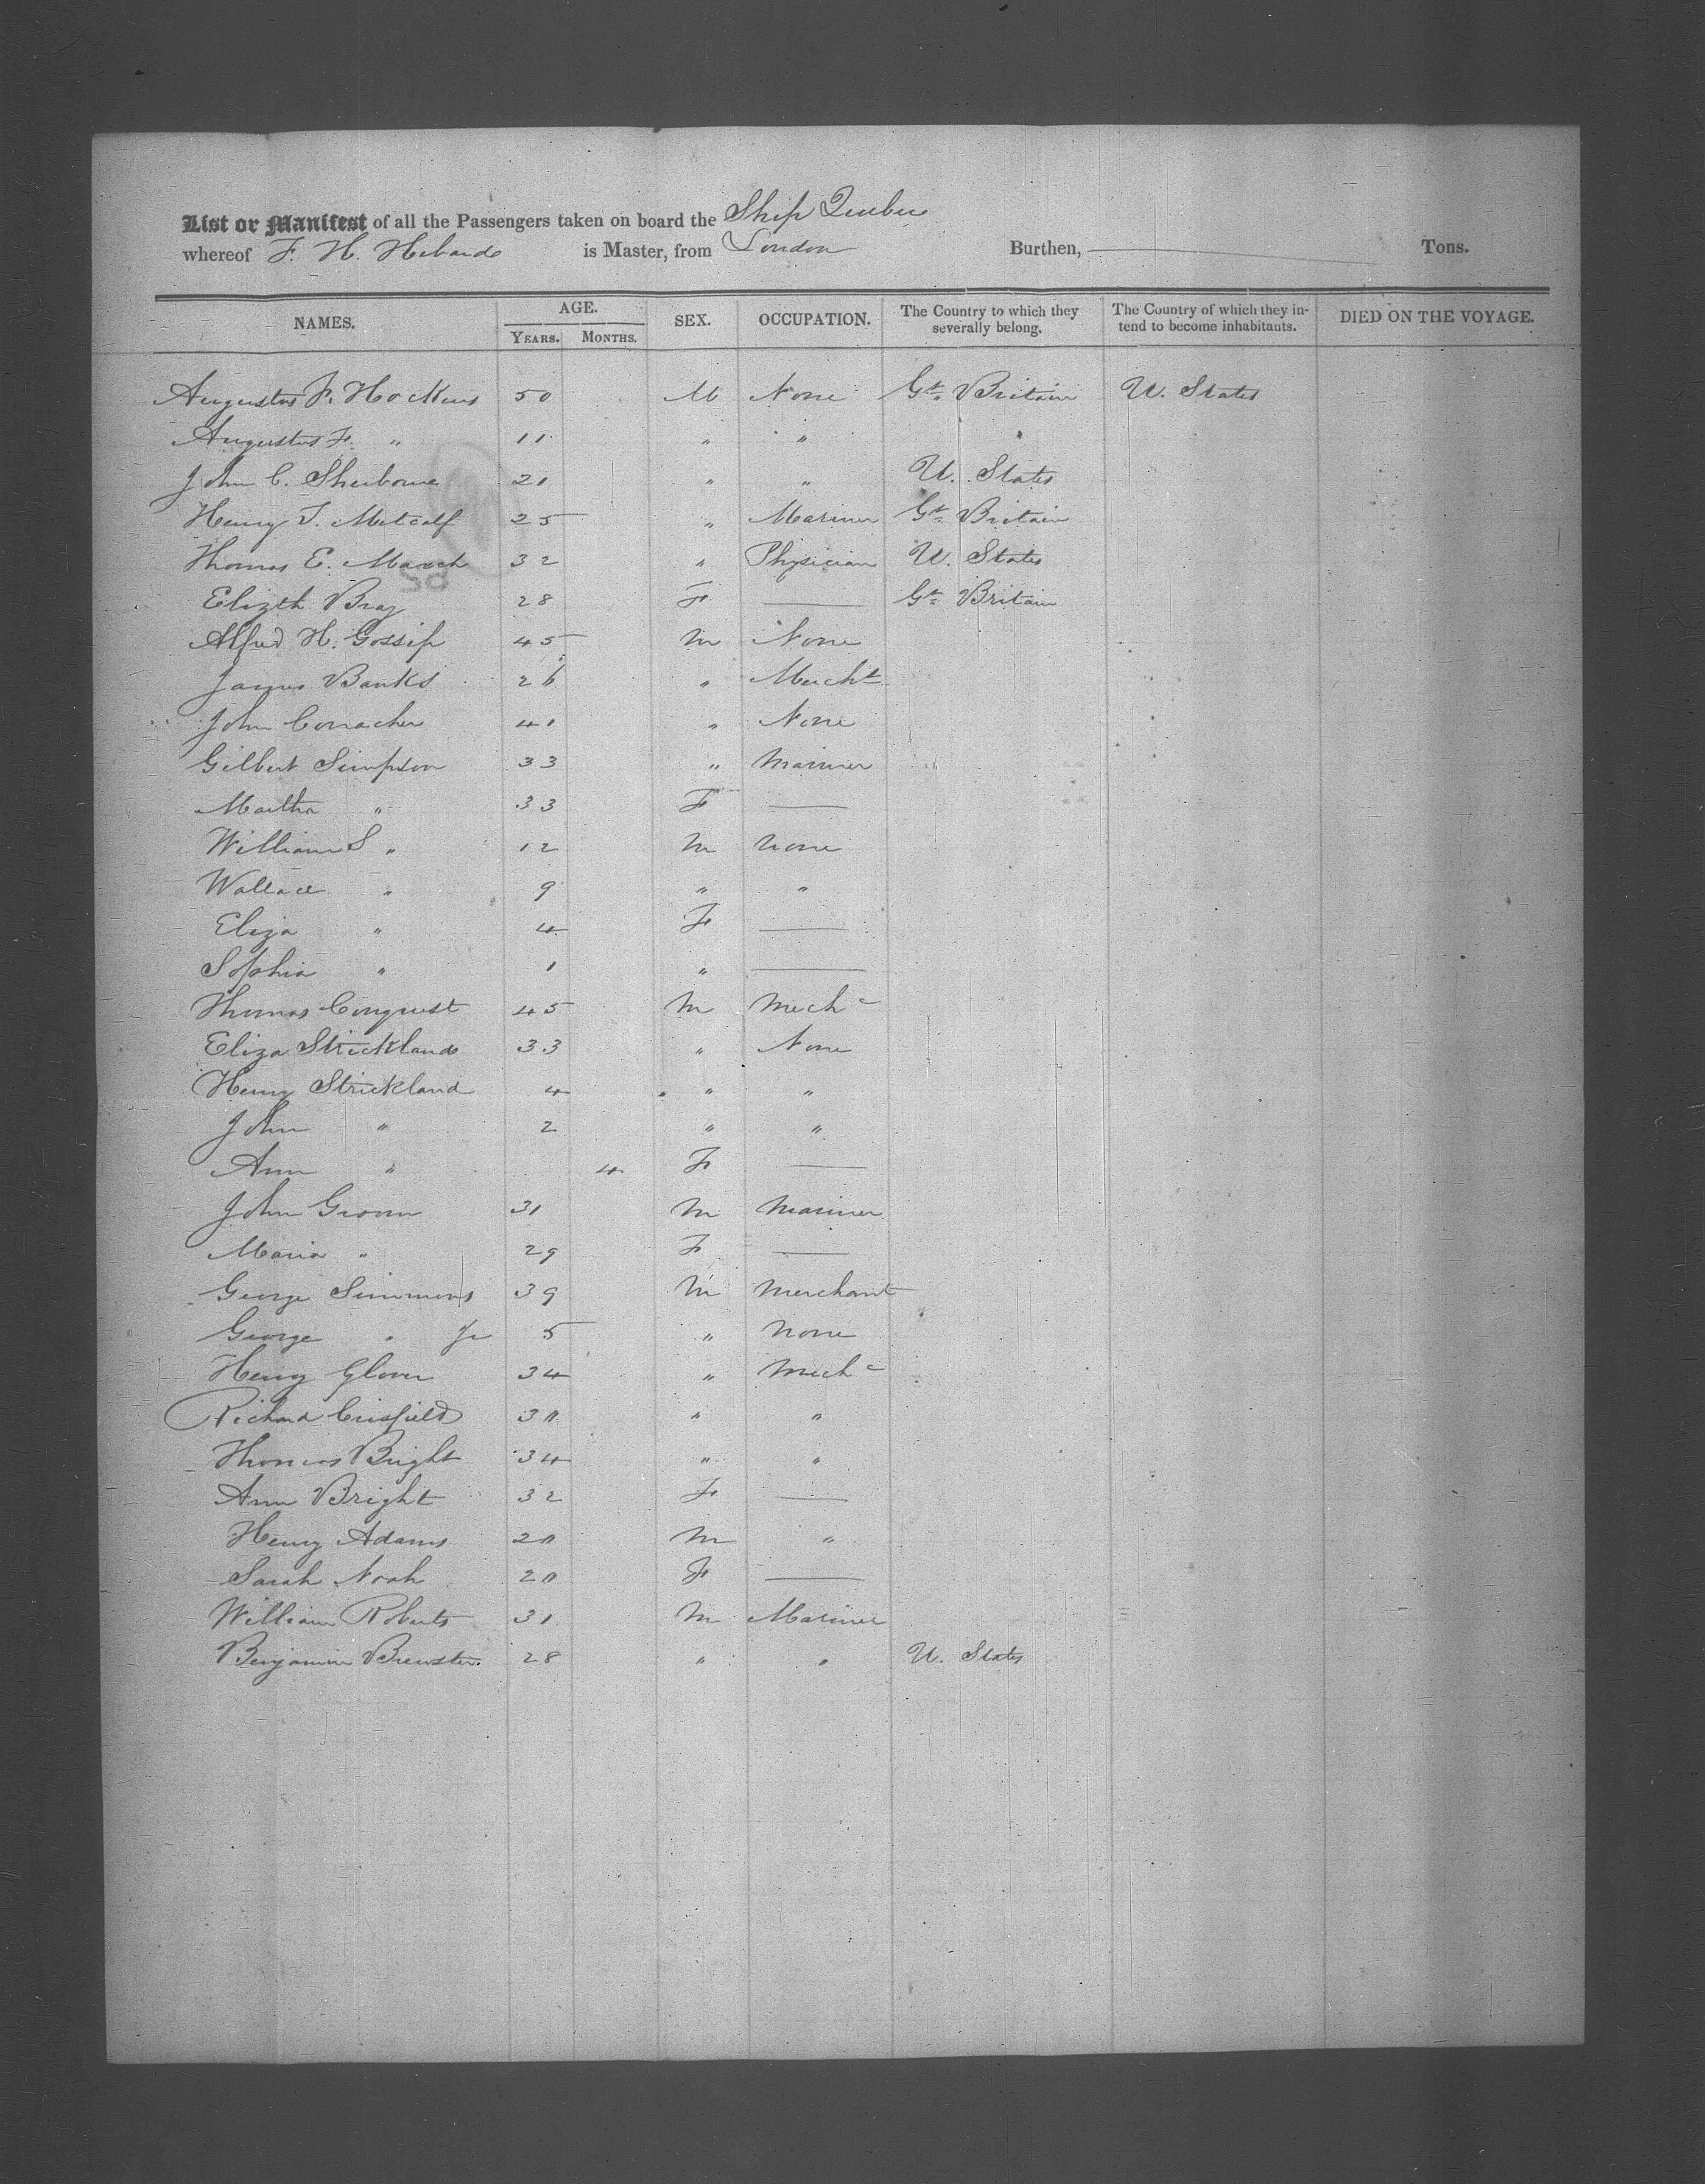 List or Manifest of all the Passengers taken on board the Ship Quebec
whereof F. H. Hebard is Master, from London Burthen, Tons.
NAMES. AGE. YEARS. MONTHS. SEX. OCCUPATION. The Country to which they severally belong. The Country of which they intend to become inhabitants. DIED ON THE VOYAGE.
Augustus F. Hockens 50 M None Gt. Britain U. States
Augustus F. " 11 " "
John C. Sherborne 21 " " U. States
Henry T. Metcalf 25 " Mariner Gt. Britain
Thomas E. March 32 " Physician U. States
Elizth Bray 28 F — Gt. Britain
Alfred H. Gossip 45 M None
James Banks 26 " Mercht
John Conacher 41 " None
Gilbert Simpson 33 " Mariner
Martha " 33 F —
William S " 12 M None
Wallace " 9 " "
Eliza " 4 F —
Sophia " 1 " —
Thomas Conquest 45 M Mechc
Eliza Strickland 33 " None
Henry Strickland 4 " "
John " 2 " "
Ann " 4 F —
John Groom 31 M Mariner
Maria " 29 F —
George Simmons 39 M Merchant
George " Jr 5 " None
Henry Glover 34 " Mechc
Richard Crisfield 30 " "
Thomas Bright 34 " "
Ann Bright 32 F —
Henry Adams 20 M "
Sarah Noah 20 F —
William Roberts 31 M Mariner
Benjamin Brewster. 28 " " U. States